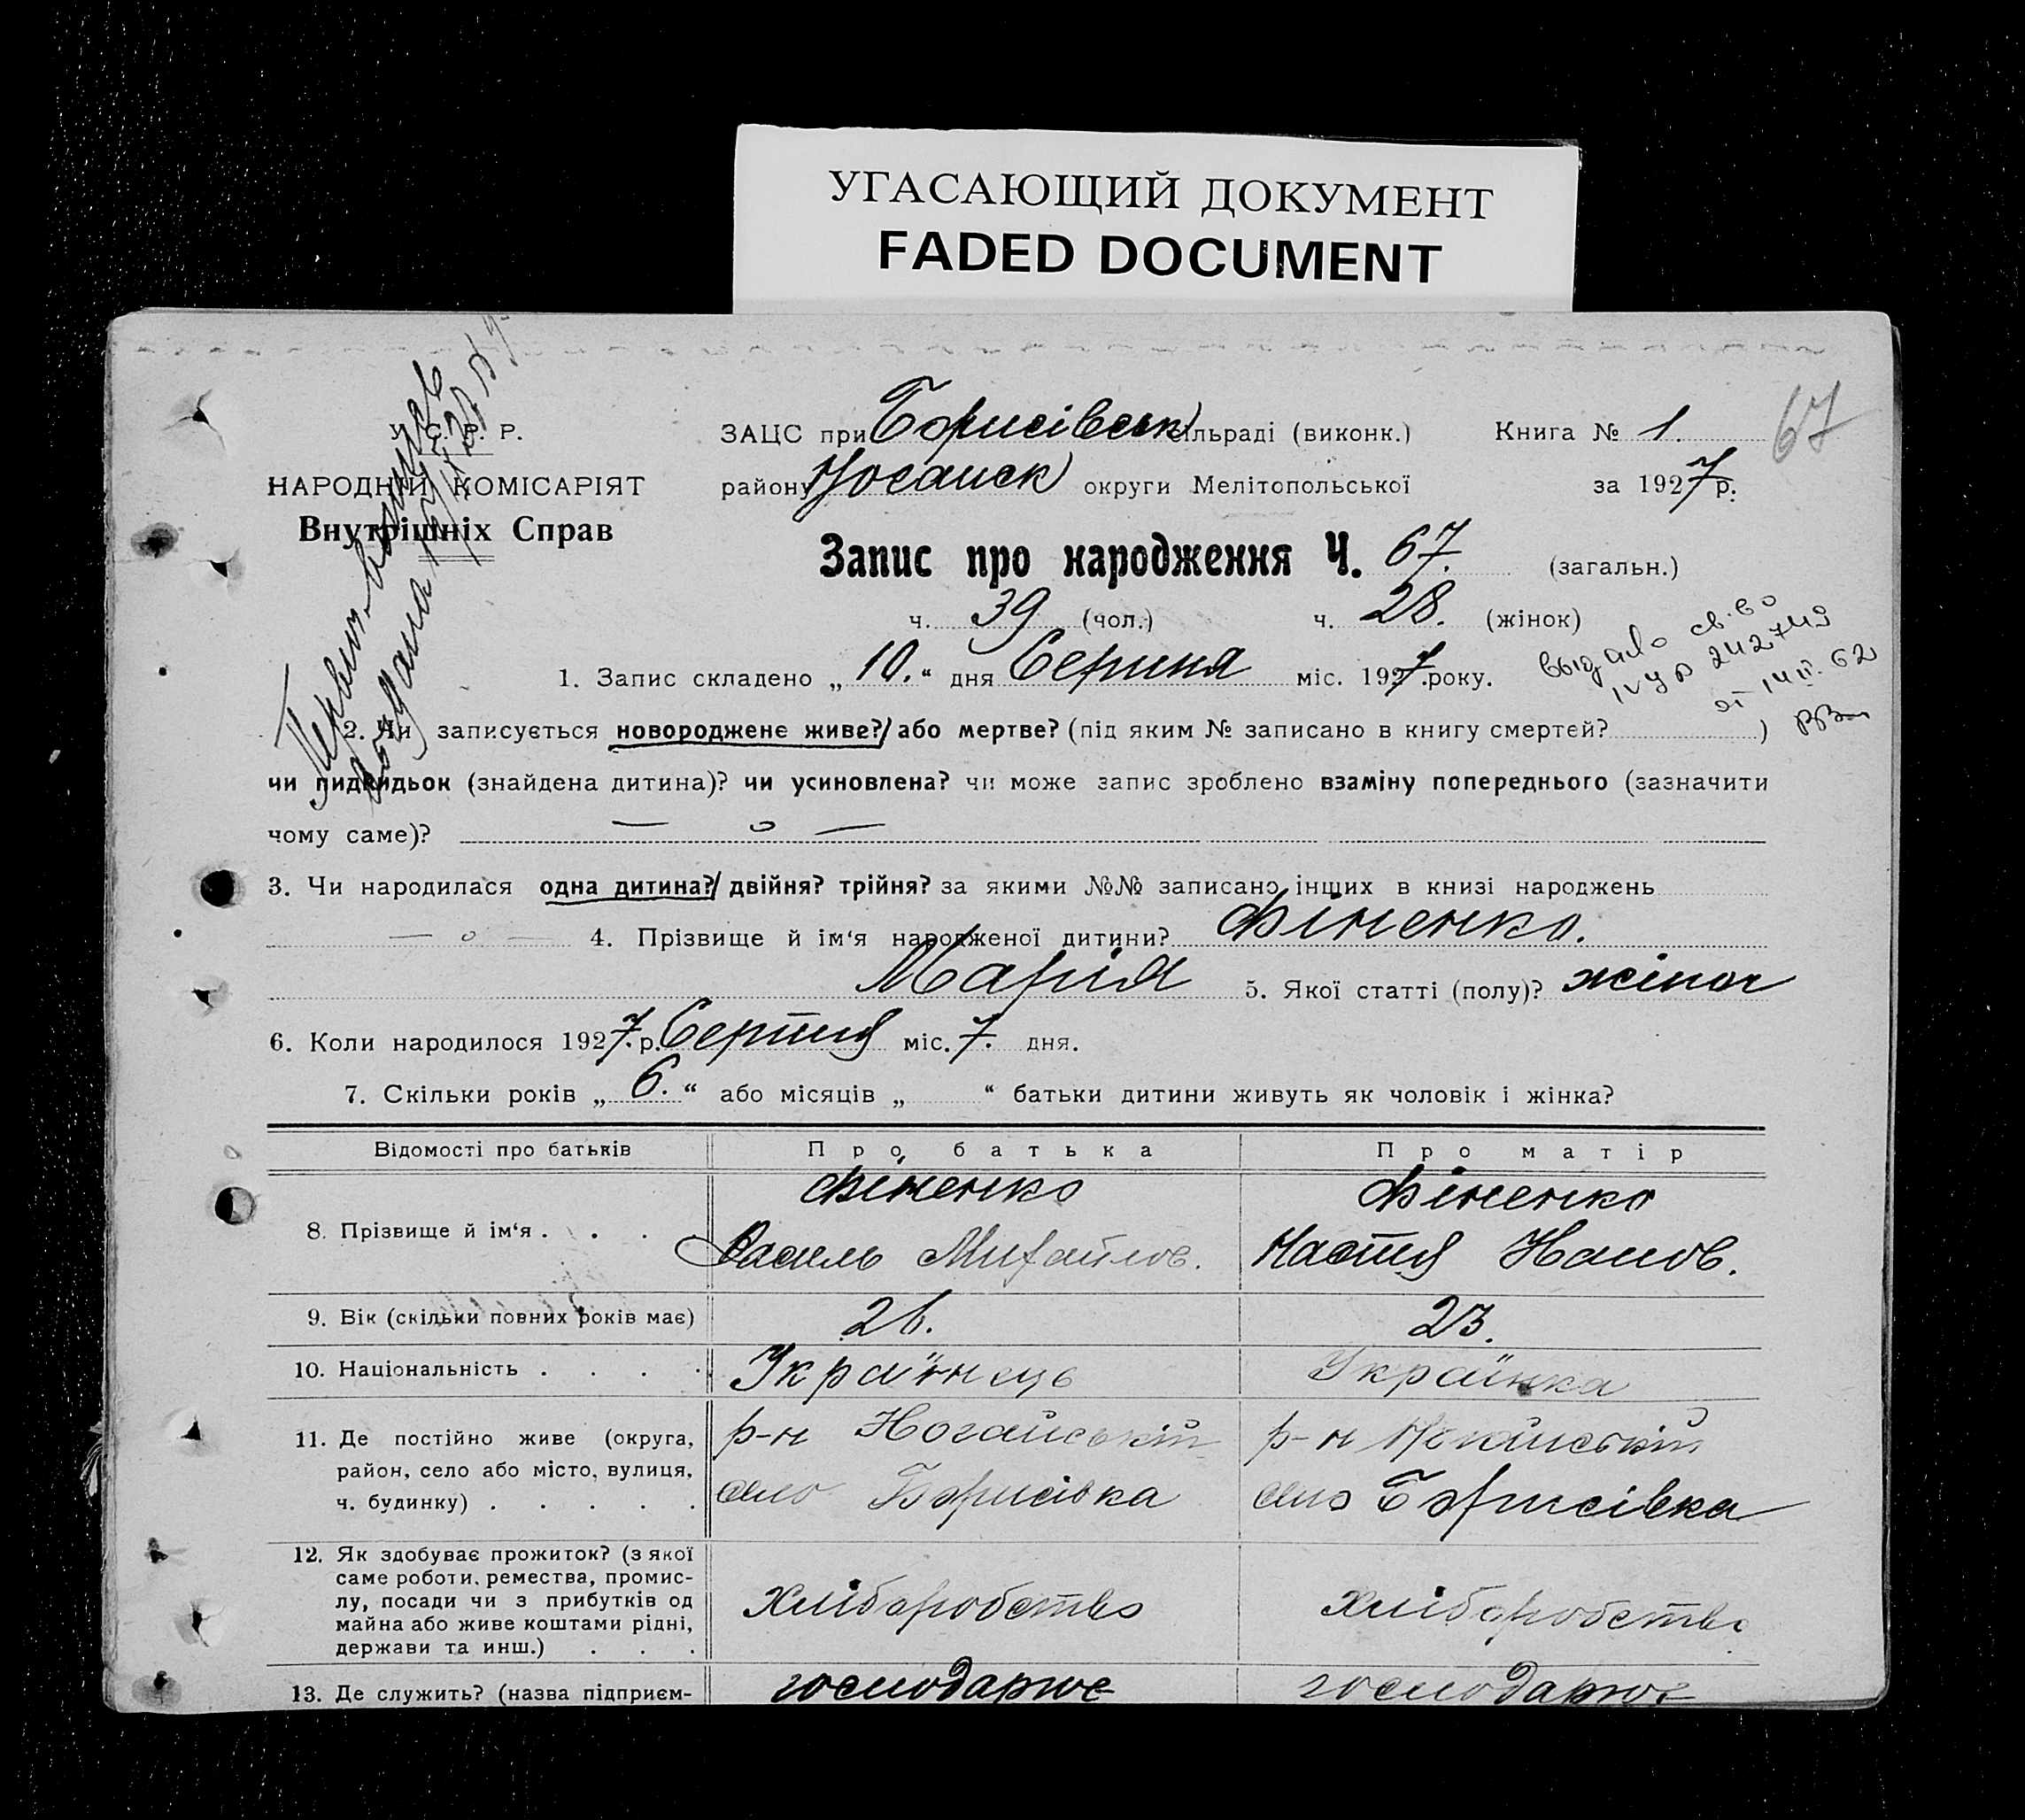 УГАСАЮЩИЙ ДОКУМЕНТ
FADED DOCUMENT
67
У. С. Р. Р.
НАРОДНІЙ КОМІСАРІЯТ
Внутрішніх Справ
ЗАЦС при Борисівськ сільраді (виконк.) Книга № 1.
району Ногайск округи Мелітопольської за 1927 р.
Запис про народження Ч. 67. (загальн.)
ч. 39 (чол.) ч. 28. (жінок)
выдано св-во
242743
от 14 II. 62
1. Запис складено „10.“ дня Серпня міс. 1927. року.
2. Чи записується новороджене живе?/ або мертве? (під яким № записано в книгу смертей? )
чи пидкидьок (знайдена дитина)? чи усиновлена? чи може запис зроблено взаміну попереднього (зазначити
чому саме)? — о —
3. Чи народилася одна дитина?/ двійня? трійня? за якими №№ записано інших в книзі народжень
— о — 4. Прізвище й ім‘я народженої дитини? Фіненко.
Марія 5. Якої статті (полу)? жіноч
6. Коли народилося 1927. р. Серпня міс. 7. дня.
7. Скільки років „6.“ або місяців „ “ батьки дитини живуть як чоловік і жінка?
Відомості про батьків Про батька Про матір
8. Прізвище й ім‘я . . . Фіненко Фіненко
Василь Михайлов. Настя Іванов.
9. Вік (скільки повних років має) 26. 23.
10. Національність . . . . Українець Українка
11. Де постійно живе (округа, р-н Ногайський р-н Ногайський
район, село або місто, вулиця,
ч. будинку) . . . . . село Борисівка село Борисівка
12. Як здобуває прожиток? (з якої
саме роботи, ремества, промис-
лу, посади чи з прибутків од
майна або живе коштами рідні,
держави та инш.) . . . хліборобство хліборобство
13. Де служить? (назва підприєм- господарює господарює